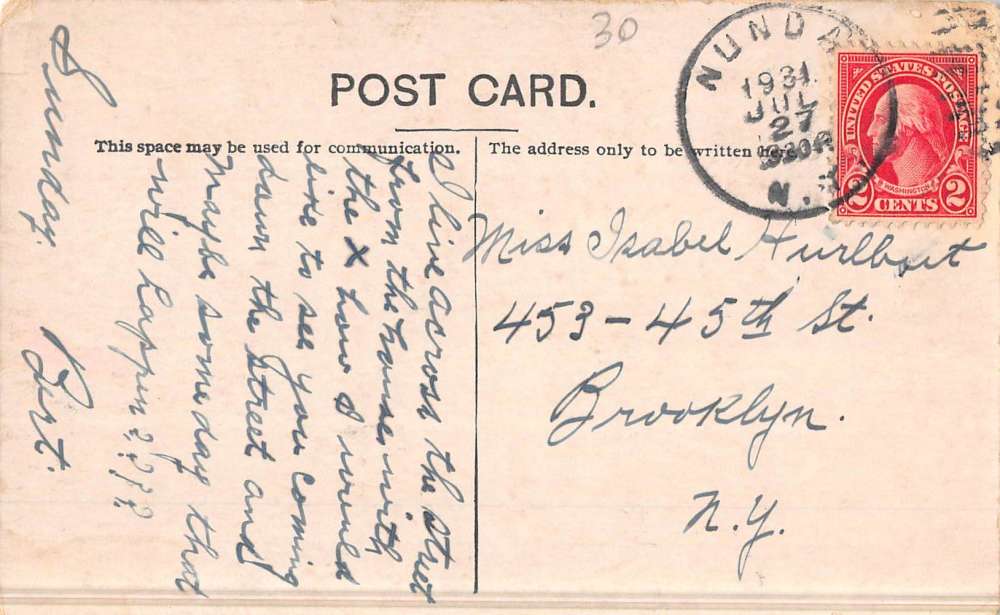 30
POST CARD.
This space may be used for communication.
The address only to be written here.
NUNDA
1931
JUL
27
N.Y.
UNITED STATES POSTAGE
WASHINGTON
2 CENTS 2
Sunday.
I live across the street
from the house with
the X how I would
like to see you coming
down the street and
Maybe some day that
will happen????
Bert.
Miss Isabel Hurlburt
453-45th St.
Brooklyn.
N.Y.